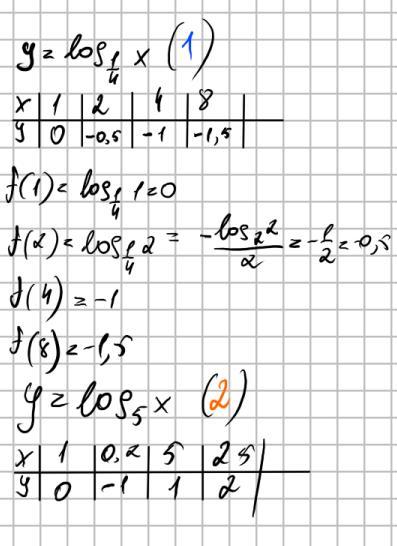 y = log_{1/4} x (1)
x | 1 | 2 | 4 | 8 |
y | 0 | -0,5 | -1 | -1,5 |
f(1) = log_{1/4} 1 = 0
f(2) = log_{1/4} 2 = -log_2 2 / 2 = -1/2 = -0,5
f(4) = -1
f(8) = -1,5
y = log_5 x (2)
x | 1 | 0,2 | 5 | 25 |
y | 0 | -1 | 1 | 2 |